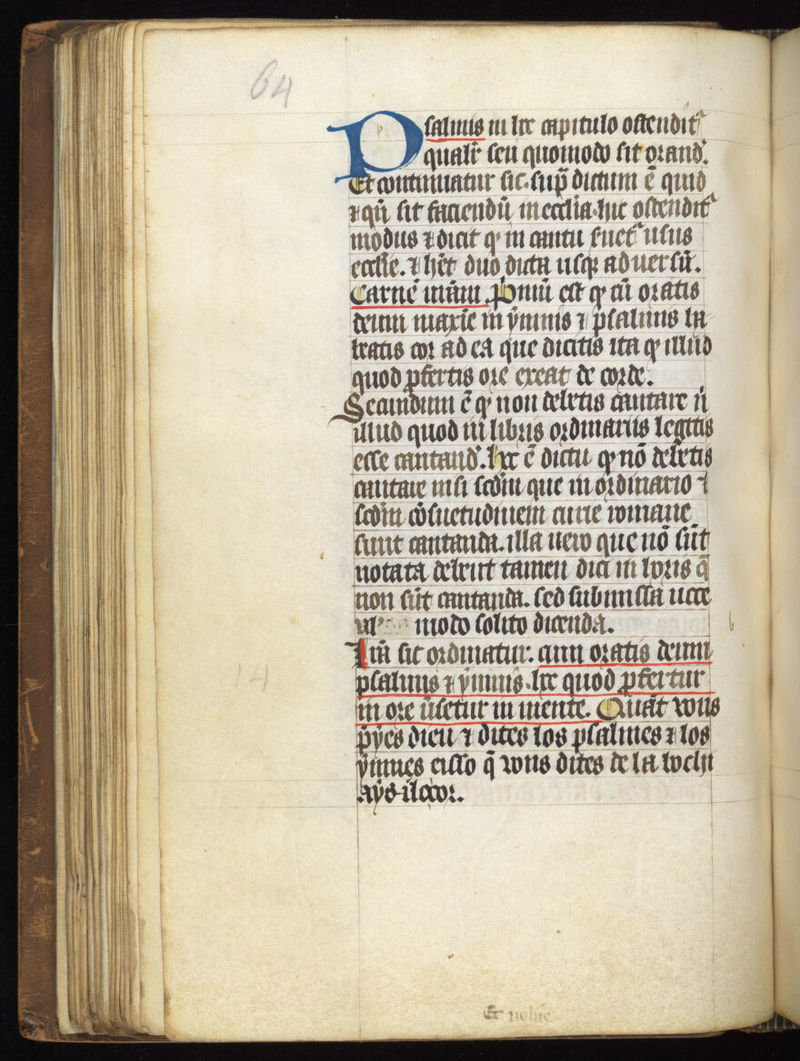 64
Psalmis in h̄c capitulo ostendit᷑
qualr̄ seu quomodo sit orand᷑.
Et continuatur sic. sup̄ dictum ē quid
⁊ qn̄ sit faciendū in ecclīa. hic ostendit᷑
modus ⁊ dicit qꝰ in cantu
ecclīe. ⁊ hēt duo dicta usqꝫ ad uersū.
Carnē nr̄am. Pmū est qꝰ cū oratis
deum maxīe in ẏmnis ⁊ psalmis la
tratis cor ad ea que dicitis ita qꝰ illud
quod ꝓfertis ore exeat de corde.
Secundum ē qꝰ non debetis cantare n̄
illud quod in libris ordinariis legitis
esse cantand᷑. h̄c ē dictū qꝰ nō debetis
cantare nisi scdm̄ que in ordinario ⁊
scdm̄ cōsuetudinem curie romane
sunt cantanda. illa uero que nō sūt
notata debent tamen dici in horis q̄
non sūt cantanda. sed submissa uoce
modo solito dicenda.
Lrā sic ordinatur. cum oratis deum
psalmis ⁊ ẏmnis. h̄c quod ꝓfertur
in ore ūsetur in mente. Quāt vous
p̄ẏes dieu ⁊ dites los psalmes ⁊ los
ẏmnes cisso q̄ vous dites de la boch
aẏs il cor.
14
Et nobis